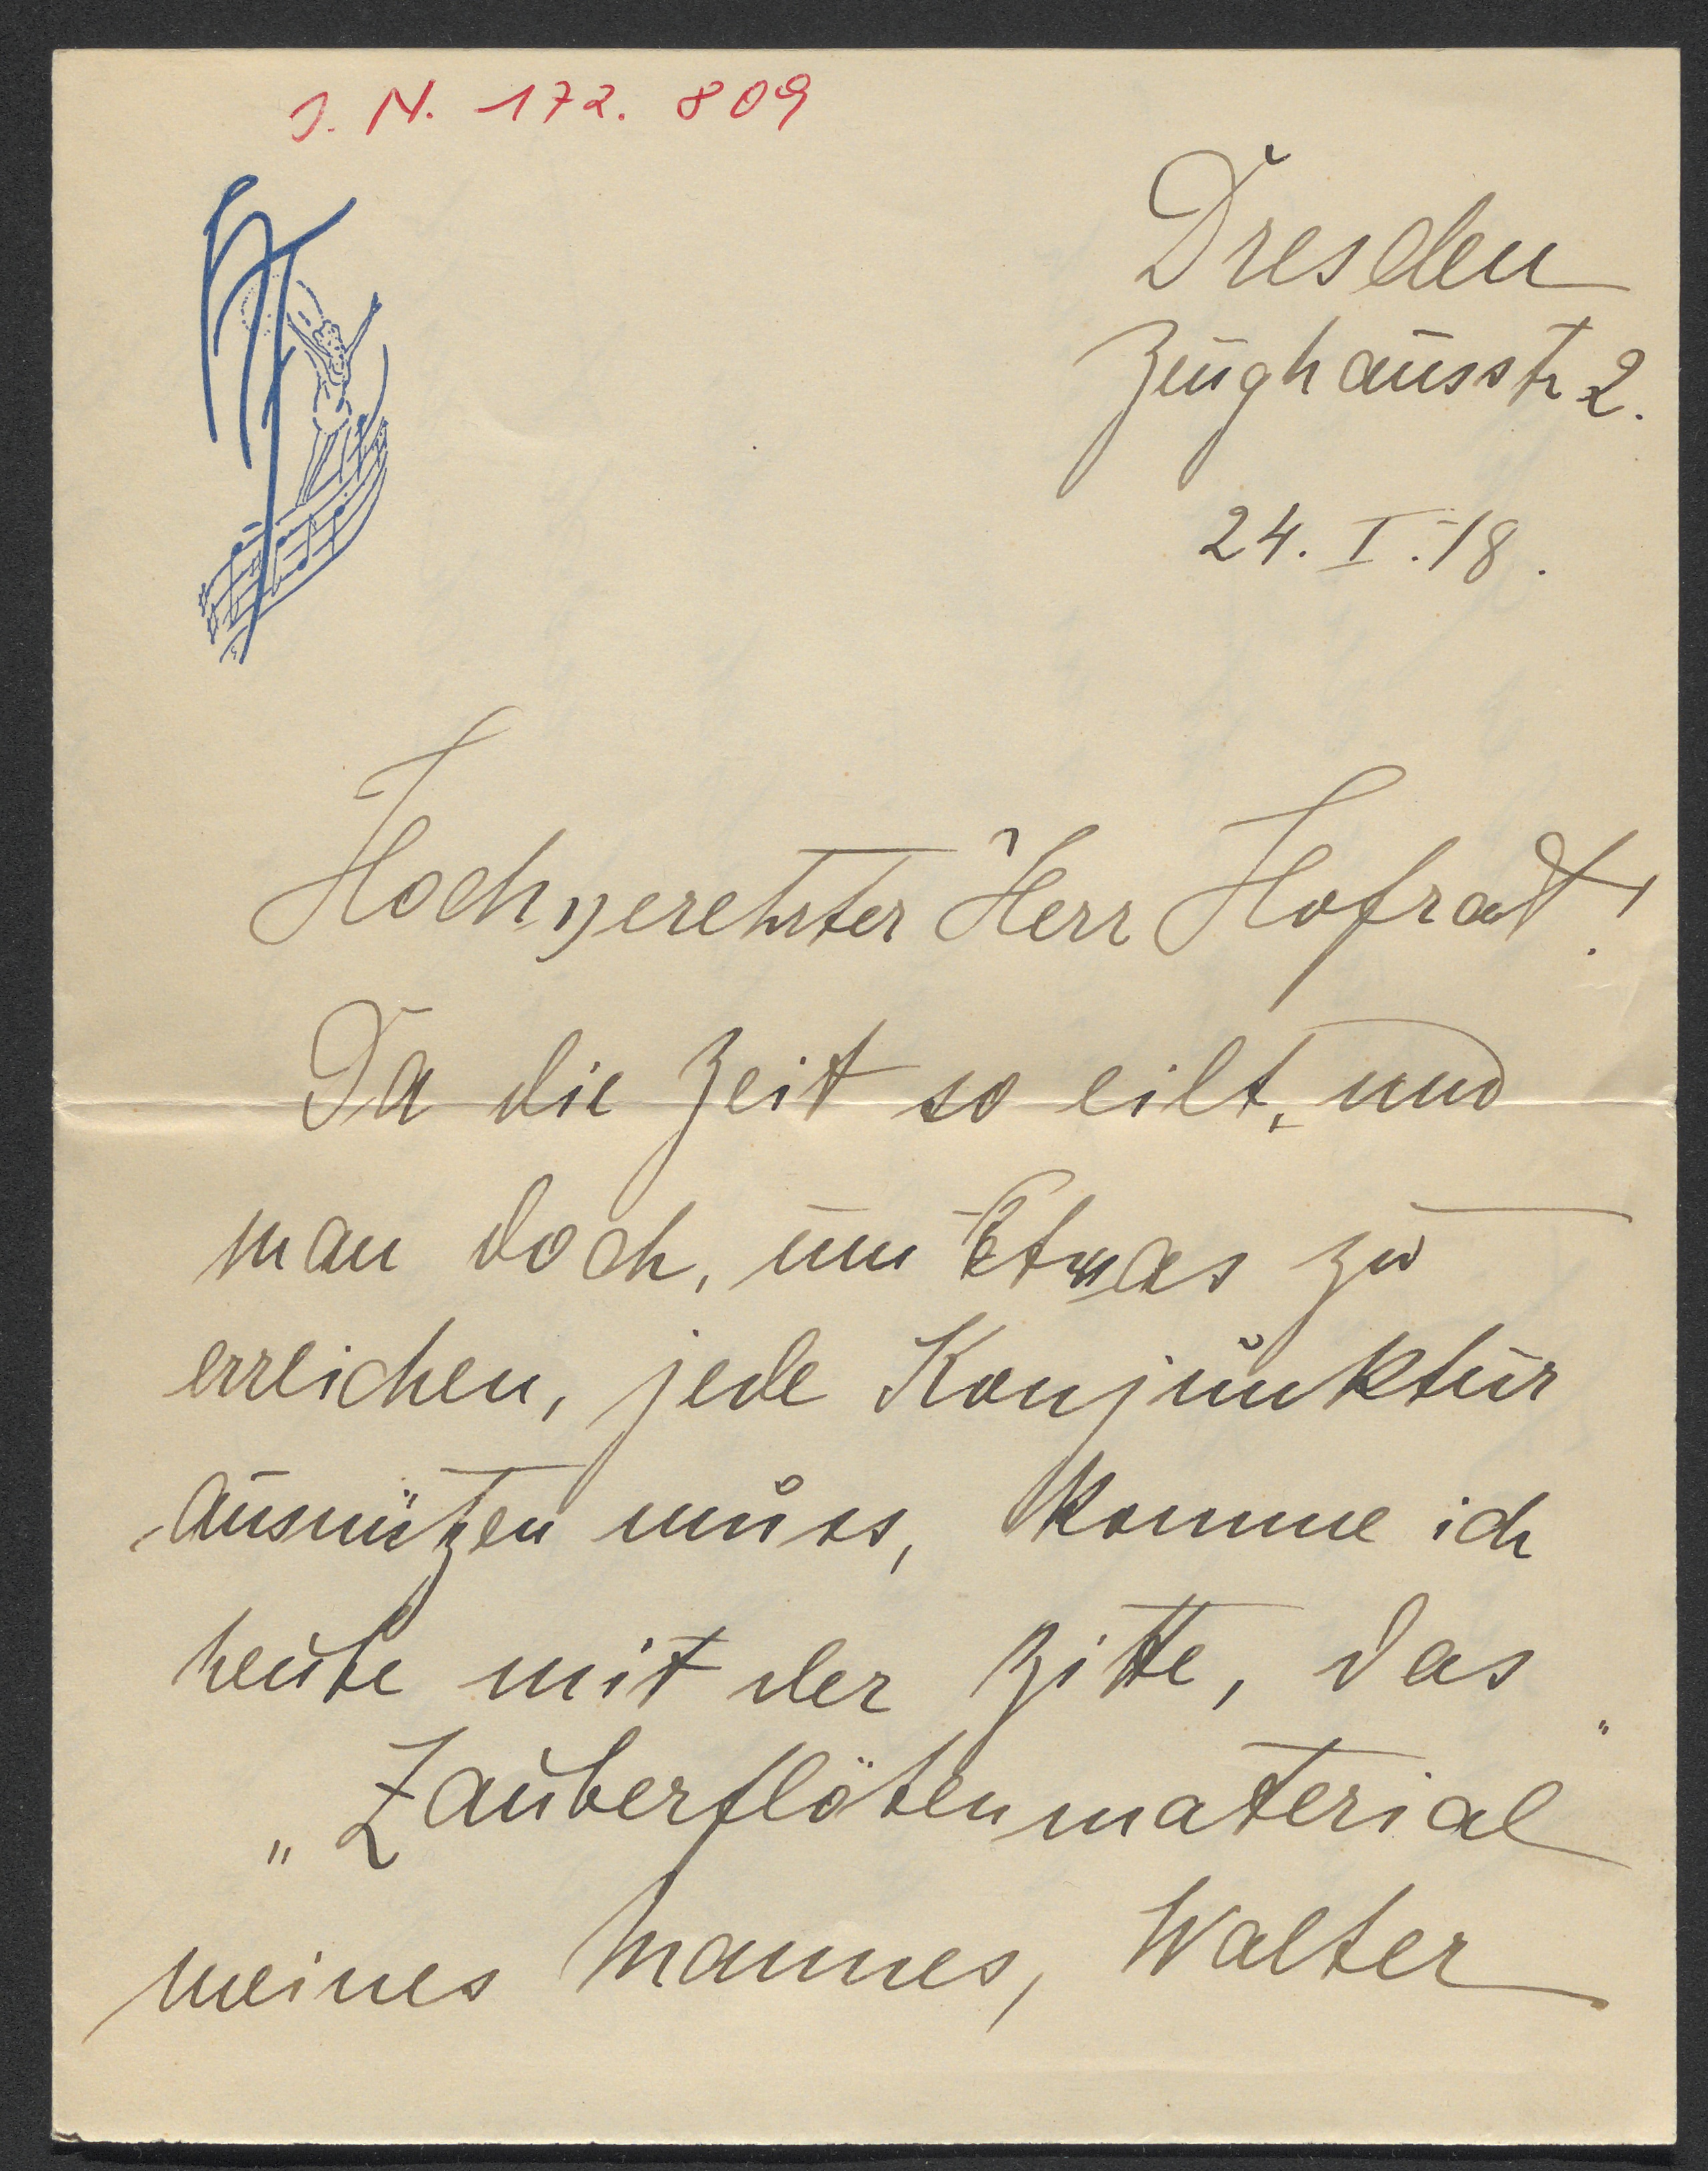 J. N. 172.809
Dresden
Zeughausstr 2.
24. I. 18.
Hochverehrter Herr Hofrat!
Da die Zeit so eilt, und
man doch, um Etwas zu
erreichen, jede Konjunktur
ausnützen muss, komme ich
heute mit der Bitte, das
„Zauberflötenmaterial"
meines Mannes, Walter